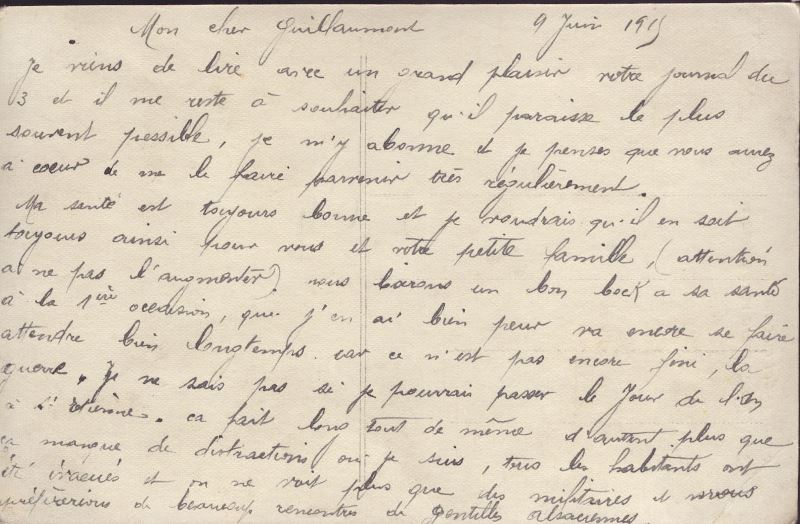 Mon cher Guillaumont 9 Juin 1915
Je viens de lire avec un grand plaisir votre journal du
3 et il me reste à souhaiter qu'il paraisse le plus
souvent possible, je m'y abonne et je penses que vous aurez
à coeur de me le faire parvenir très régulièrement.
Ma santé est toujours bonne et je voudrais qu'il en soit
toujours ainsi pour vous et votre petite famille, (attention
a ne pas l'augmenter) nous boirons un bon bock a sa santé
à la 1ère occasion, que j'en ai bien peur va encore se faire
attendre bien longtemps car ce n'est pas encore fini, la
guerre. Je ne sais pas si je pourrai passer le Jour de l'An
à St Etienne. ca fait long tout de même d'autant plus que
ca manque de distractions ou je suis, tous les habitants ont
été évacués et on ne voit plus que des militaires et nous
préférerions de beaucoup rencontrer de gentilles alsaciennes